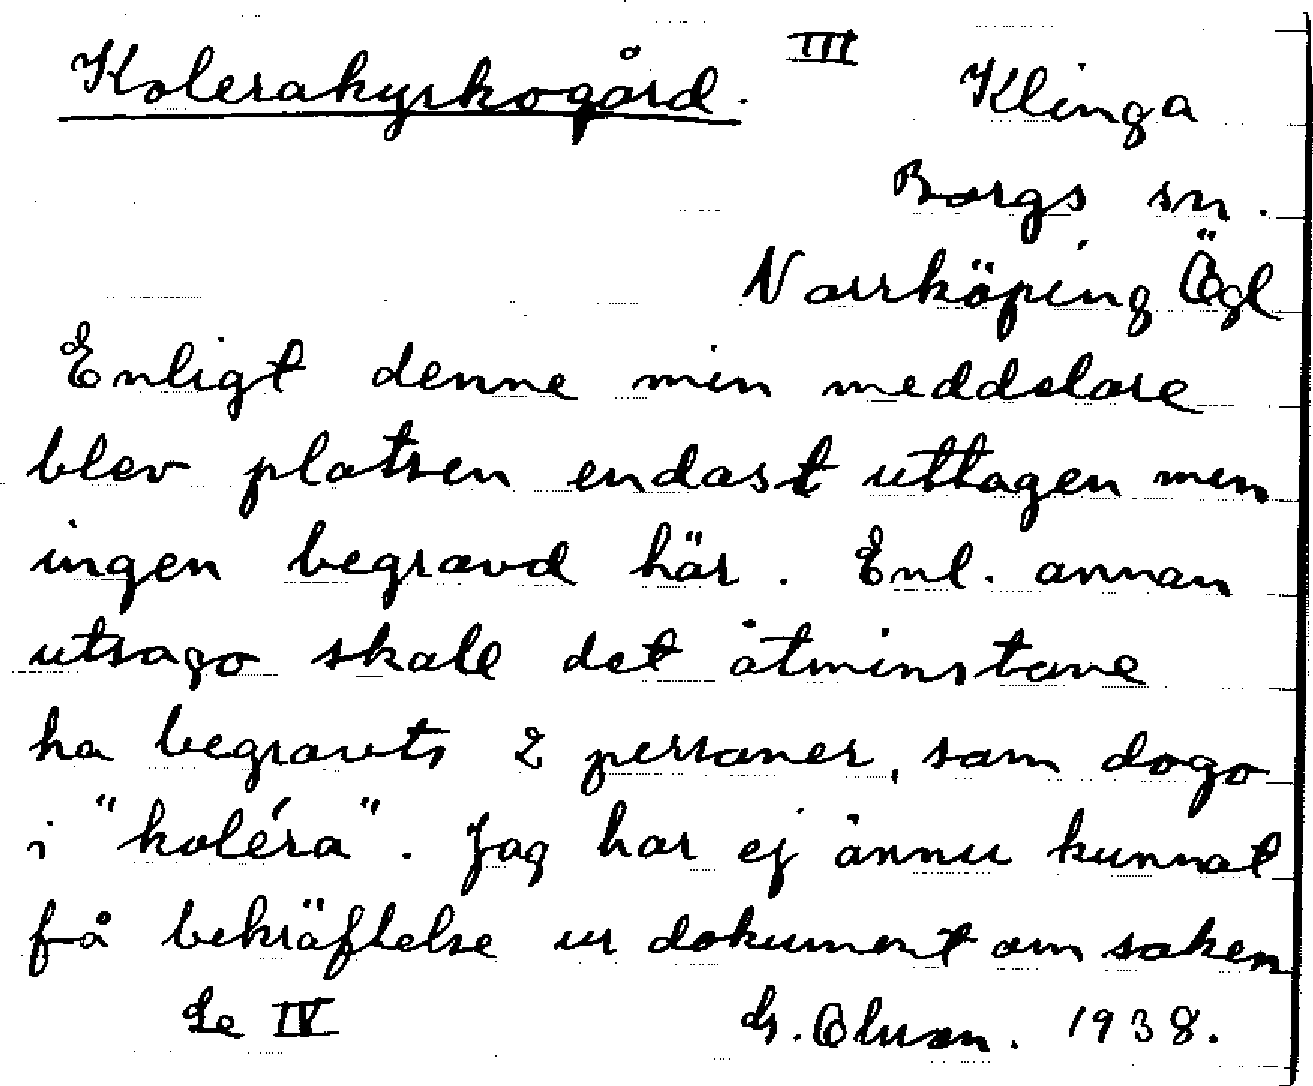 Kolerakyrkogård. III Klinga
Borgs sn.
Norrköping Ögl
Enligt denne min meddelare
blev platsen endast uttagen men
ingen begravd här. Enl. annan
utsago skall det åtminstone
ha begravts 2 personer, som dogo
i "koléra". Jag har ej ännu kunnat
få bekräftelse ur dokument om saken
Se IV G. Olsson. 1938.